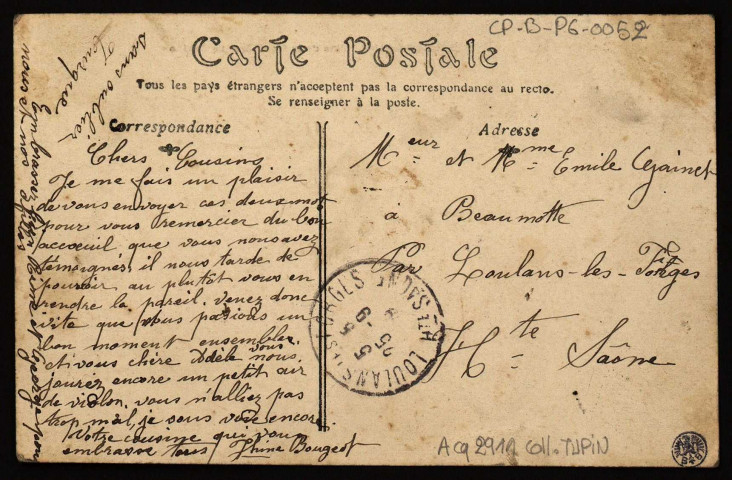 CP-B-PG-0052
Carte Postale
Tous les pays étrangers n'acceptent pas la correspondance au recto.
Se renseigner à la poste.
Correspondance
Chers Cousins
Je me fais un plaisir
de vous envoyer ces deux mot
pour vous remercier du bon
accoeuil que vous nous avez
témoignés, il nous tarde de
pouvoir au plutôt vous en
rendre la pareil. venez donc
vite que nous pasions un
bon moment ensembles.
et vous chère Adèle vous nous
jouriez encore un petit air
de violon, vous n'alliez pas
trop mal, je vous vois encore
Votre cousine qui vous
embrasse tous Bougeot
Embrassez bien et George pour
nous et nos filles
sans oublier
Adresse
Meur et Mme Emile
à Beaumotte
Par Loulans-les-Forges
Hte Saône
LOULANS-LES-FORGES HTE SAONE
5-9
Acq 2911 Coll. TUPIN